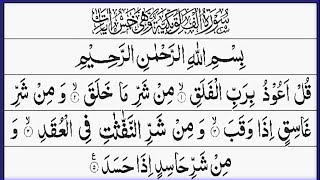 سُوْرَةُ الْفَلَقِ مَكِّيَّةٌ وَّهِيَ خَمْسُ اٰيَاتٍ
بِسْمِ اللّٰهِ الرَّحْمٰنِ الرَّحِيْمِ
قُلْ اَعُوْذُ بِرَبِّ الْفَلَقِ ۱ مِنْ شَرِّ مَا خَلَقَ ۲ وَ مِنْ شَرِّ
غَاسِقٍ اِذَا وَقَبَ ۳ وَ مِنْ شَرِّ النَّفّٰثٰتِ فِی الْعُقَدِ ۴ وَ
مِنْ شَرِّ حَاسِدٍ اِذَا حَسَدَ ۵